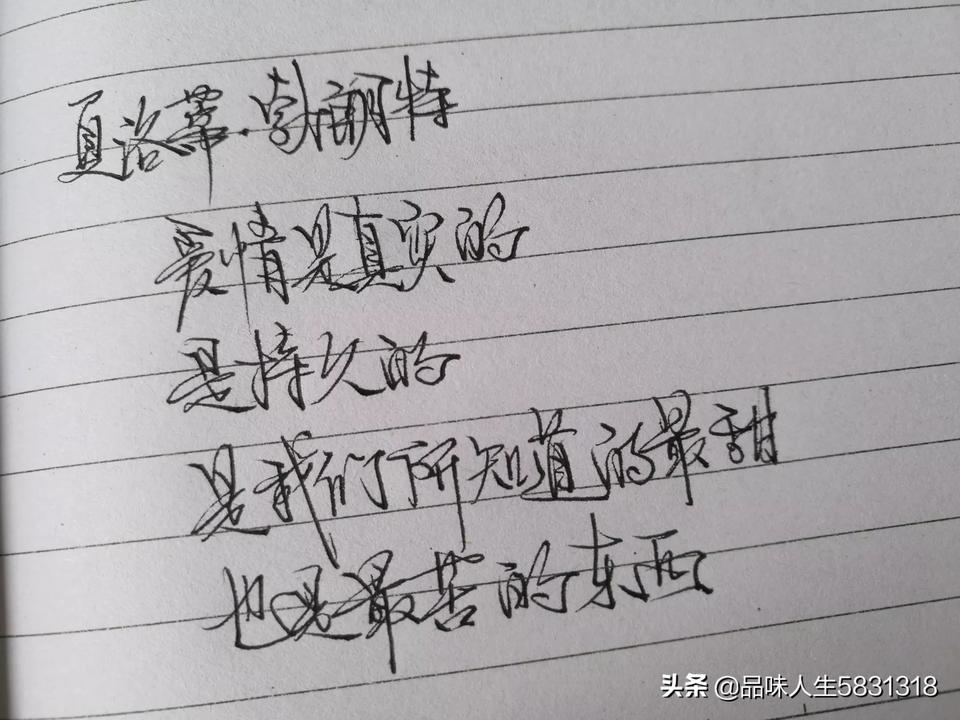 夏洛蒂·勃朗特
爱情是真实的
是持久的
是我们所知道的最甜
也是最苦的东西
头条 @品味人生5831318